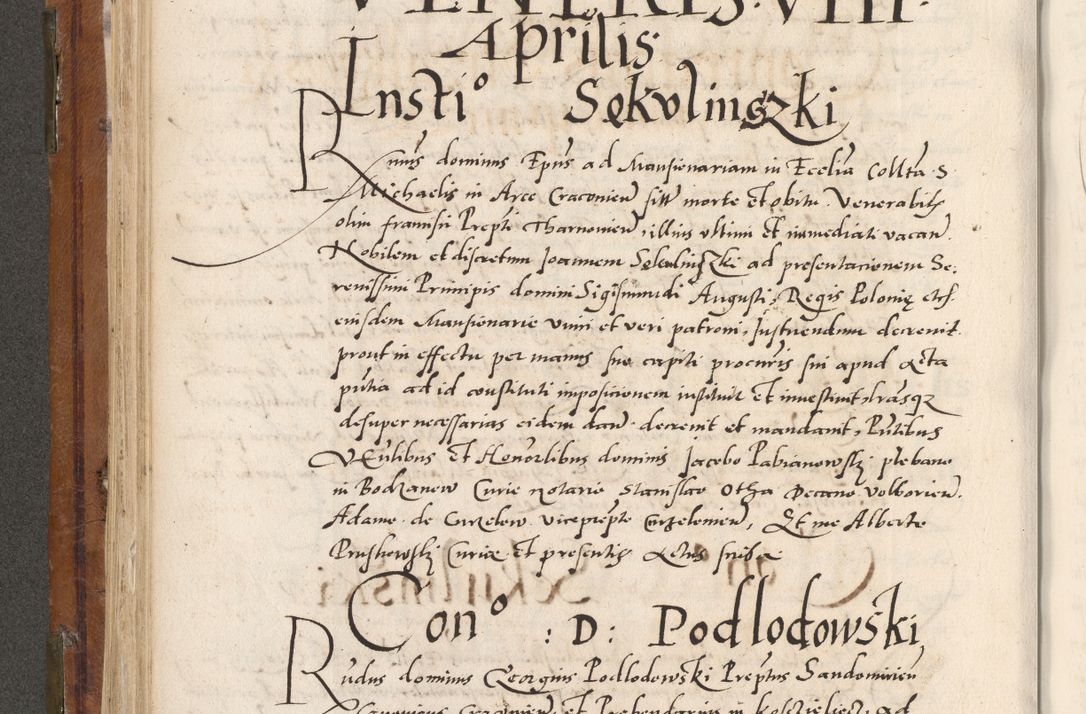 VENERIS. VIII.
Aprilis
Insti° Sękulinszki
Rmus dominus Epus ad Mansionariam in Ecclia Collta S.
Michaelis in Arce Cracovien sitt morte et obitu Venerabilis
olim francisci Prepti Tharnovien, illius ultimi et immediati vacan.
Nobilem et discretum Joannem Sękulinszki ad presentacionem Se-
renissimi Principis domini Sigismundi Augusti, Regis Polonię etc.
eiusdem Mansionarie unici et veri patroni, Instituendum decrevit.
prout in effectu per manus suo capiti procuris sui apud acta
pntia ad id constituti imposicionem instituit et investivit, lrasqz
desuper necessarias eidem dan decrevit et mandavit, Pntibus
Venlibus et Honorlibus dominis Jacobo Pabianowsky plebano
in Bodzanow Curie notario Stanislao Otha Decano Volborien.
Adamo de Curzelow viceprepto Curzelovien, Et me Alberto
Pruskowsky Curiae et presentis Actus scriba
Con° : D: Podlodowski
Rndus dominus Georgius Podlodowski Preptus Sandomirien
Canonicus Cracovien, et Prebendarius in ad